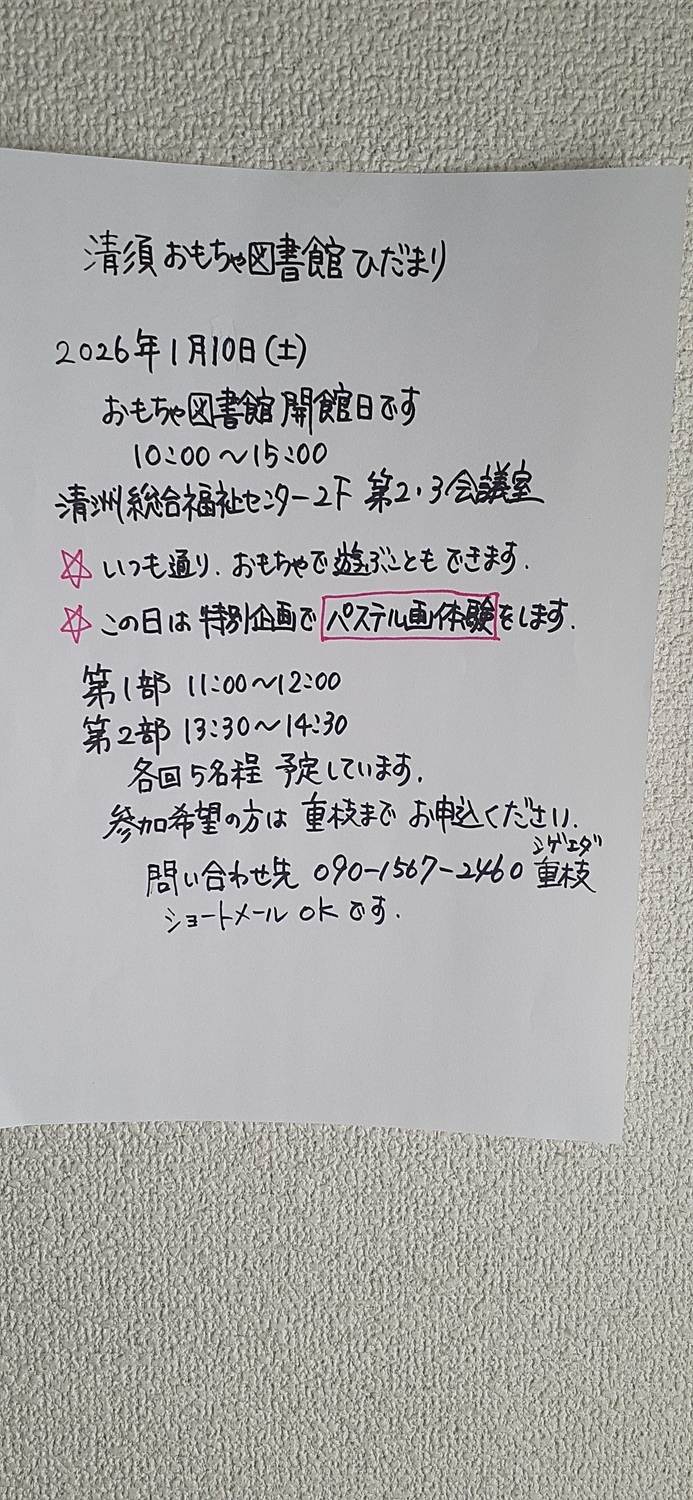 清須おもちゃ図書館ひだまり
2026年1月10日(土)
おもちゃ図書館開館日です
10:00~15:00
清洲総合福祉センター2F 第2・3会議室
☆いつも通り、おもちゃで遊ぶこともできます.
☆この日は特別企画でパステル画体験をします.
第1部 11:00~12:00
第2部 13:30~14:30
各回5名程 予定しています.
参加希望の方は 重枝まで お申込ください.
シゲエダ
問い合わせ先 090-1567-2460 重枝
ショートメール OKです.